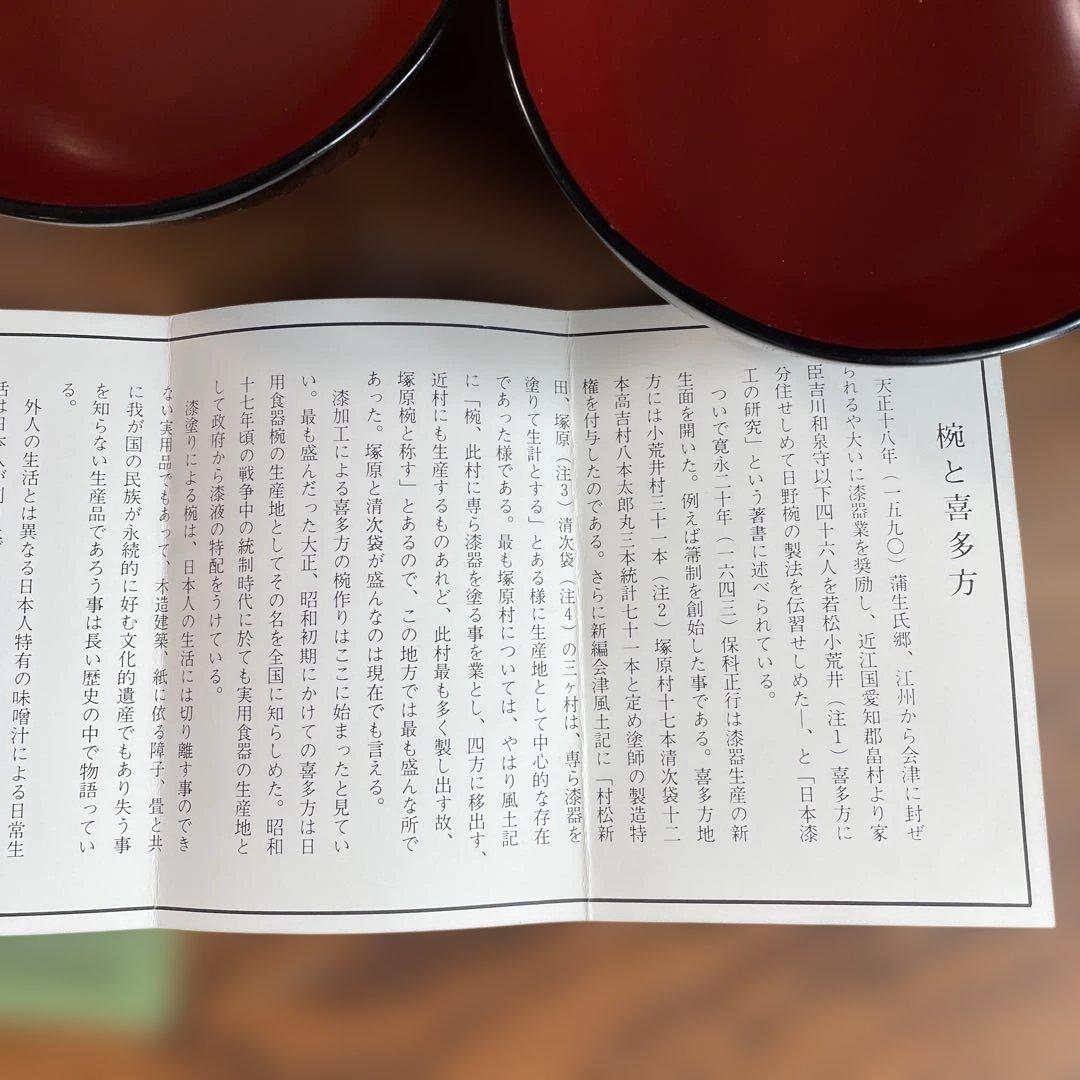 椀と喜多方
天正十八年（一五九〇）蒲生氏郷、江州から会津に封ぜ
られるや大いに漆器業を奨励し、近江国愛知郡畠村より家
臣吉川和泉守以下四十六人を若松小荒井（注１）喜多方に
分住せしめて日野椀の製法を伝習せしめた―、と「日本漆
工の研究」という著書に述べられている。
ついで寛永二十年（一六四三）保科正行は漆器生産の新
生面を開いた。例えば箒制を創始した事である。喜多方地
方には小荒井村三十一本（注２）塚原村十七本清次袋十二
本高吉村八本太郎丸三本統計七十一本と定め塗師の製造特
権を付与したのである。さらに新編会津風土記に「村松新
田、塚原（注３）清次袋（注４）の三ヶ村は、専ら漆器を
塗りて生計とする」とある様に生産地として中心的な存在
であった様である。最も塚原村については、やはり風土記
に「椀、此村に専ら漆器を塗る事を業とし、四方に移出す、
近村にも生産するものあれど、此村最も多く製し出す故、
塚原椀と称す」とあるので、この地方では最も盛んな所で
あった。塚原と清次袋が盛んなのは現在でも言える。
漆加工による喜多方の椀作りはここに始まったと見てい
い。最も盛んだった大正、昭和初期にかけての喜多方は日
用食器椀の生産地としてその名を全国に知らしめた。昭和
十七年頃の戦争中の統制時代に於ても実用食器の生産地と
して政府から漆液の特配をうけている。
漆塗りによる椀は、日本人の生活には切り離す事のでき
ない実用品でもあって、木造建築、紙に依る障子、畳と共
に我が国の民族が永続的に好む文化的遺産でもあり失う事
を知らない生産品であろう事は長い歴史の中で物語ってい
る。
外人の生活とは異なる日本人特有の味噌汁による日常生
活は日本人が